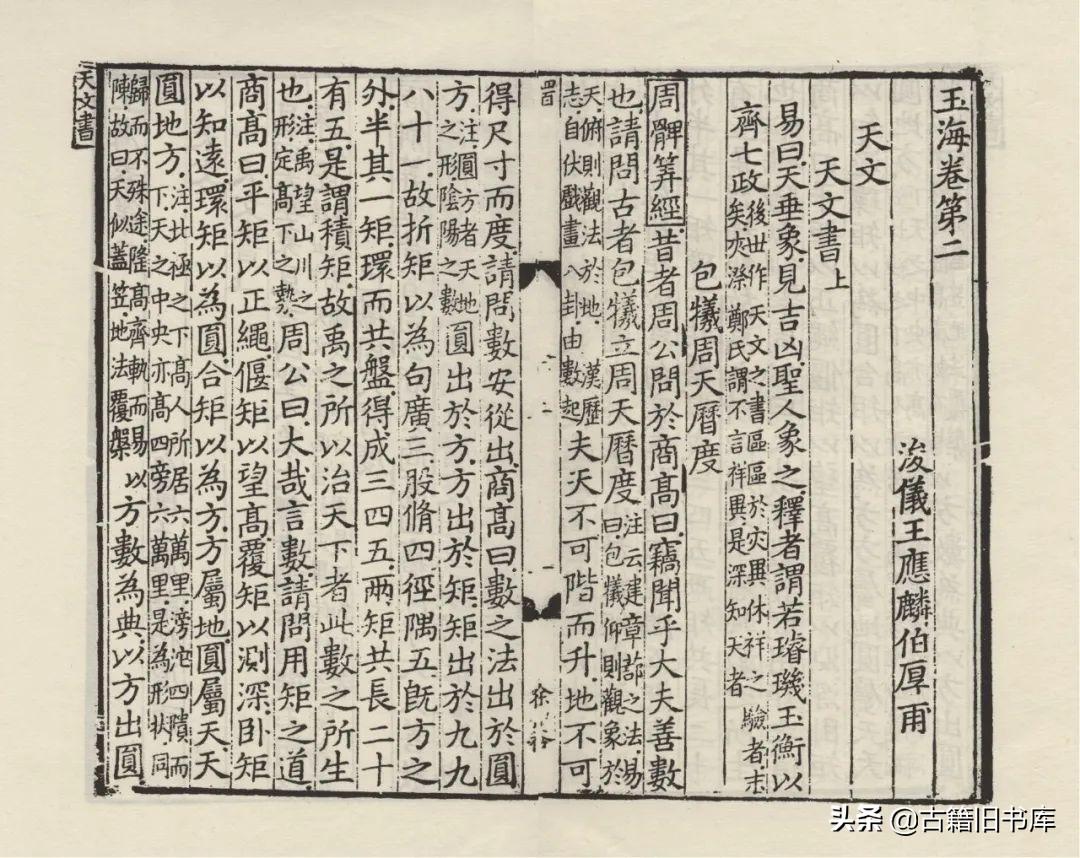 玉海卷第二
浚儀王應麟伯厚甫
天文
天文書上
易曰天垂象見吉凶聖人象之釋者謂若璿璣玉衡以
齊七政後世作天文之書區區於灾異休祥之驗者末矣夾漈鄭氏謂不言祥異是深知天者
包犧周天曆度
周髀筭經昔者周公問於商高曰竊聞乎大夫善數
也請問古者包犧立周天曆度注云建章蔀之法易曰包犧仰則觀象於
天俯則觀法於地漢歷志自伏戲畫八卦由數起夫天不可階而升地不可
徐
得尺寸而度請問數安從出商高曰數之法出於圓
方注圓方者天地之形陰陽之數圓出於方方出於矩矩出於九九
八十一故折矩以為句廣三股脩四徑隅五旣方之
外半其一矩環而共盤得成三四五兩矩共長二十
有五是謂積矩故禹之所以治天下者此數之所生
也注禹望山川之形定高下之勢周公曰大哉言數請問用矩之道
商高曰平矩以正繩偃矩以望高覆矩以測深卧矩
以知遠環矩以為圓合矩以為方方屬地圓屬天天
圓地方注北極之下高人所居六萬里滂沱四隤而下天之中央亦高四旁六萬里是為形狀同
歸而不殊途隆高齊軌而易陳故曰天似蓋笠地法覆槃以方數為典以方出圓
天文書
头条 @古籍旧书库